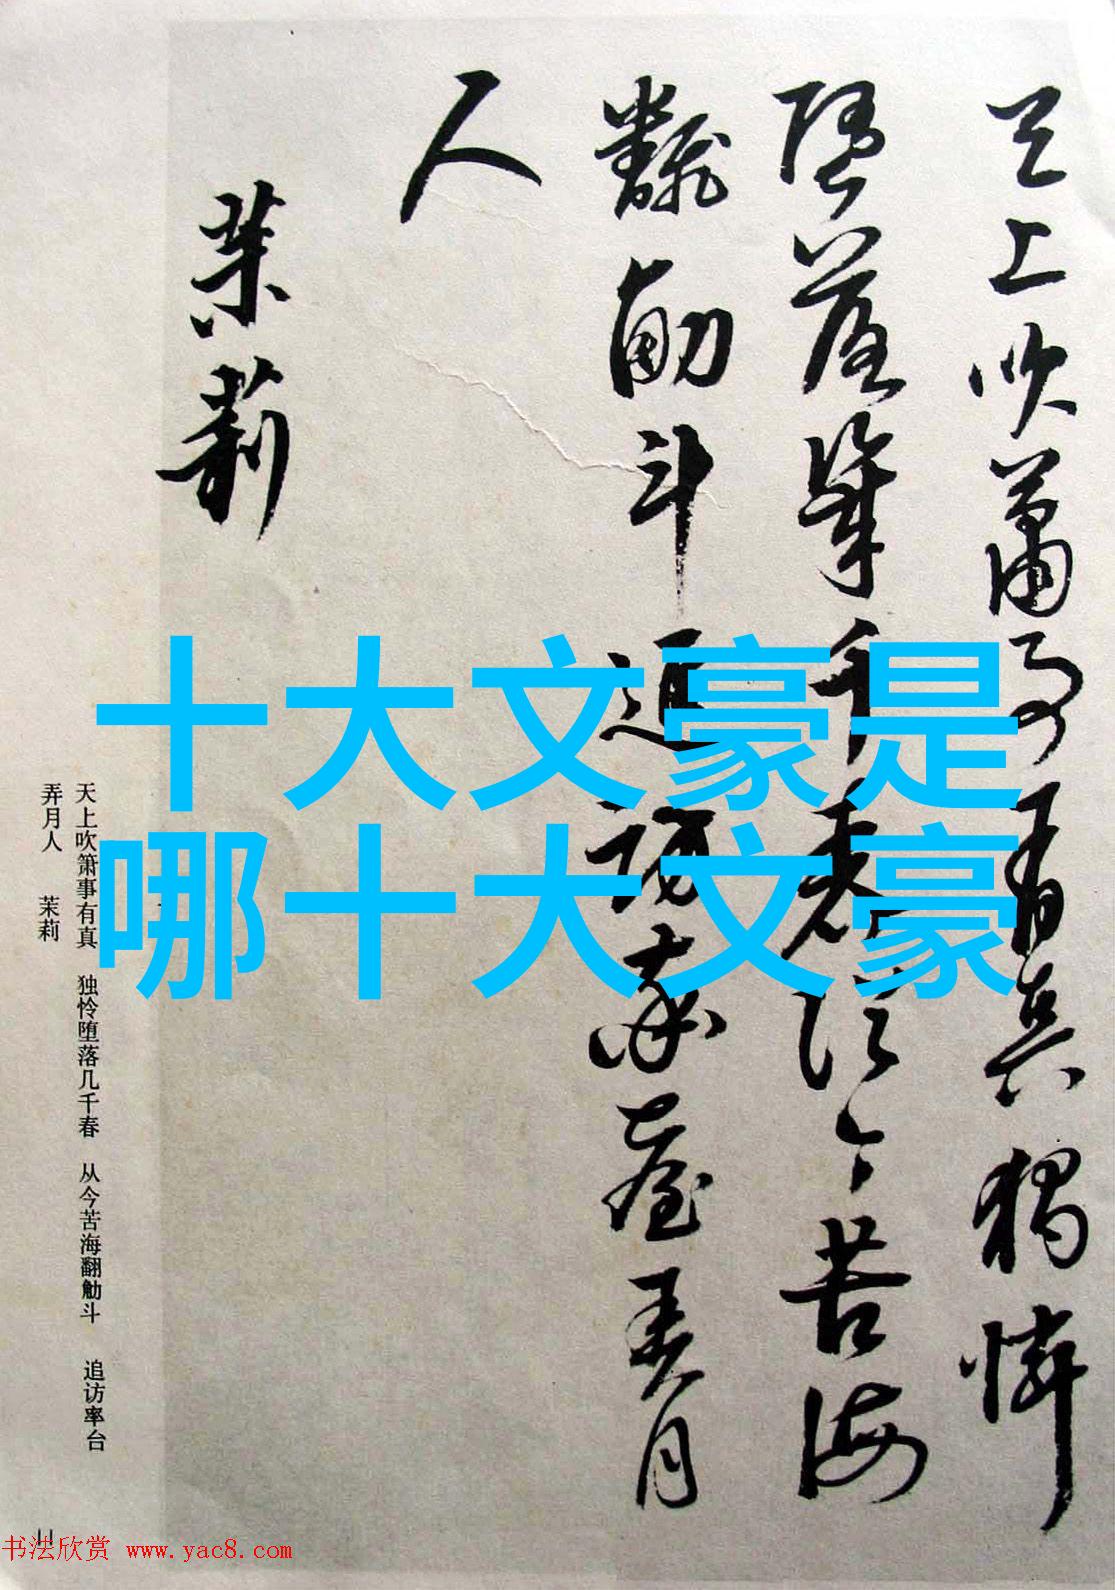 天上吹箫事有真独怜
堕落几千春从今苦海
翻觔斗追访率台弄月
人
茉莉
十大文豪是
哪十大文豪
天上吹箫事有真 独怜堕落几千春 从今苦海翻觔斗 追访率台
弄月人 茉莉
11
书法欣赏 www.yac8.com